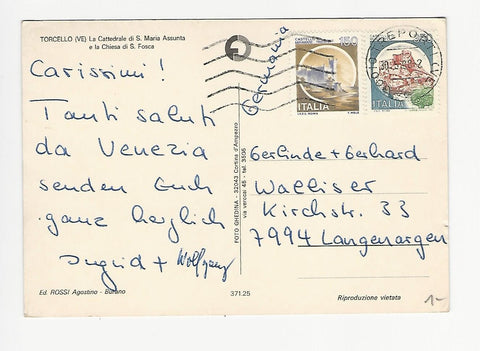 TORCELLO (VE) La Cattedrale di S. Maria Assunta
e la Chiesa di S. Fosca
Carissimi!
Tanti saluti
da Venezia
senden Euch
ganz herzlich
Ingrid + Wolfgang
Ed. ROSSI Agostino - Burano
371.25
FOTO GHEDINA - 32043 Cortina d'Ampezzo
via verocai 45 - tel. 3506
Germania
150
ITALIA
ITALIA
Gerlinde + Gerhard
Walliser
Kirchstr. 33
7994 Langenargen
Riproduzione vietata
1-